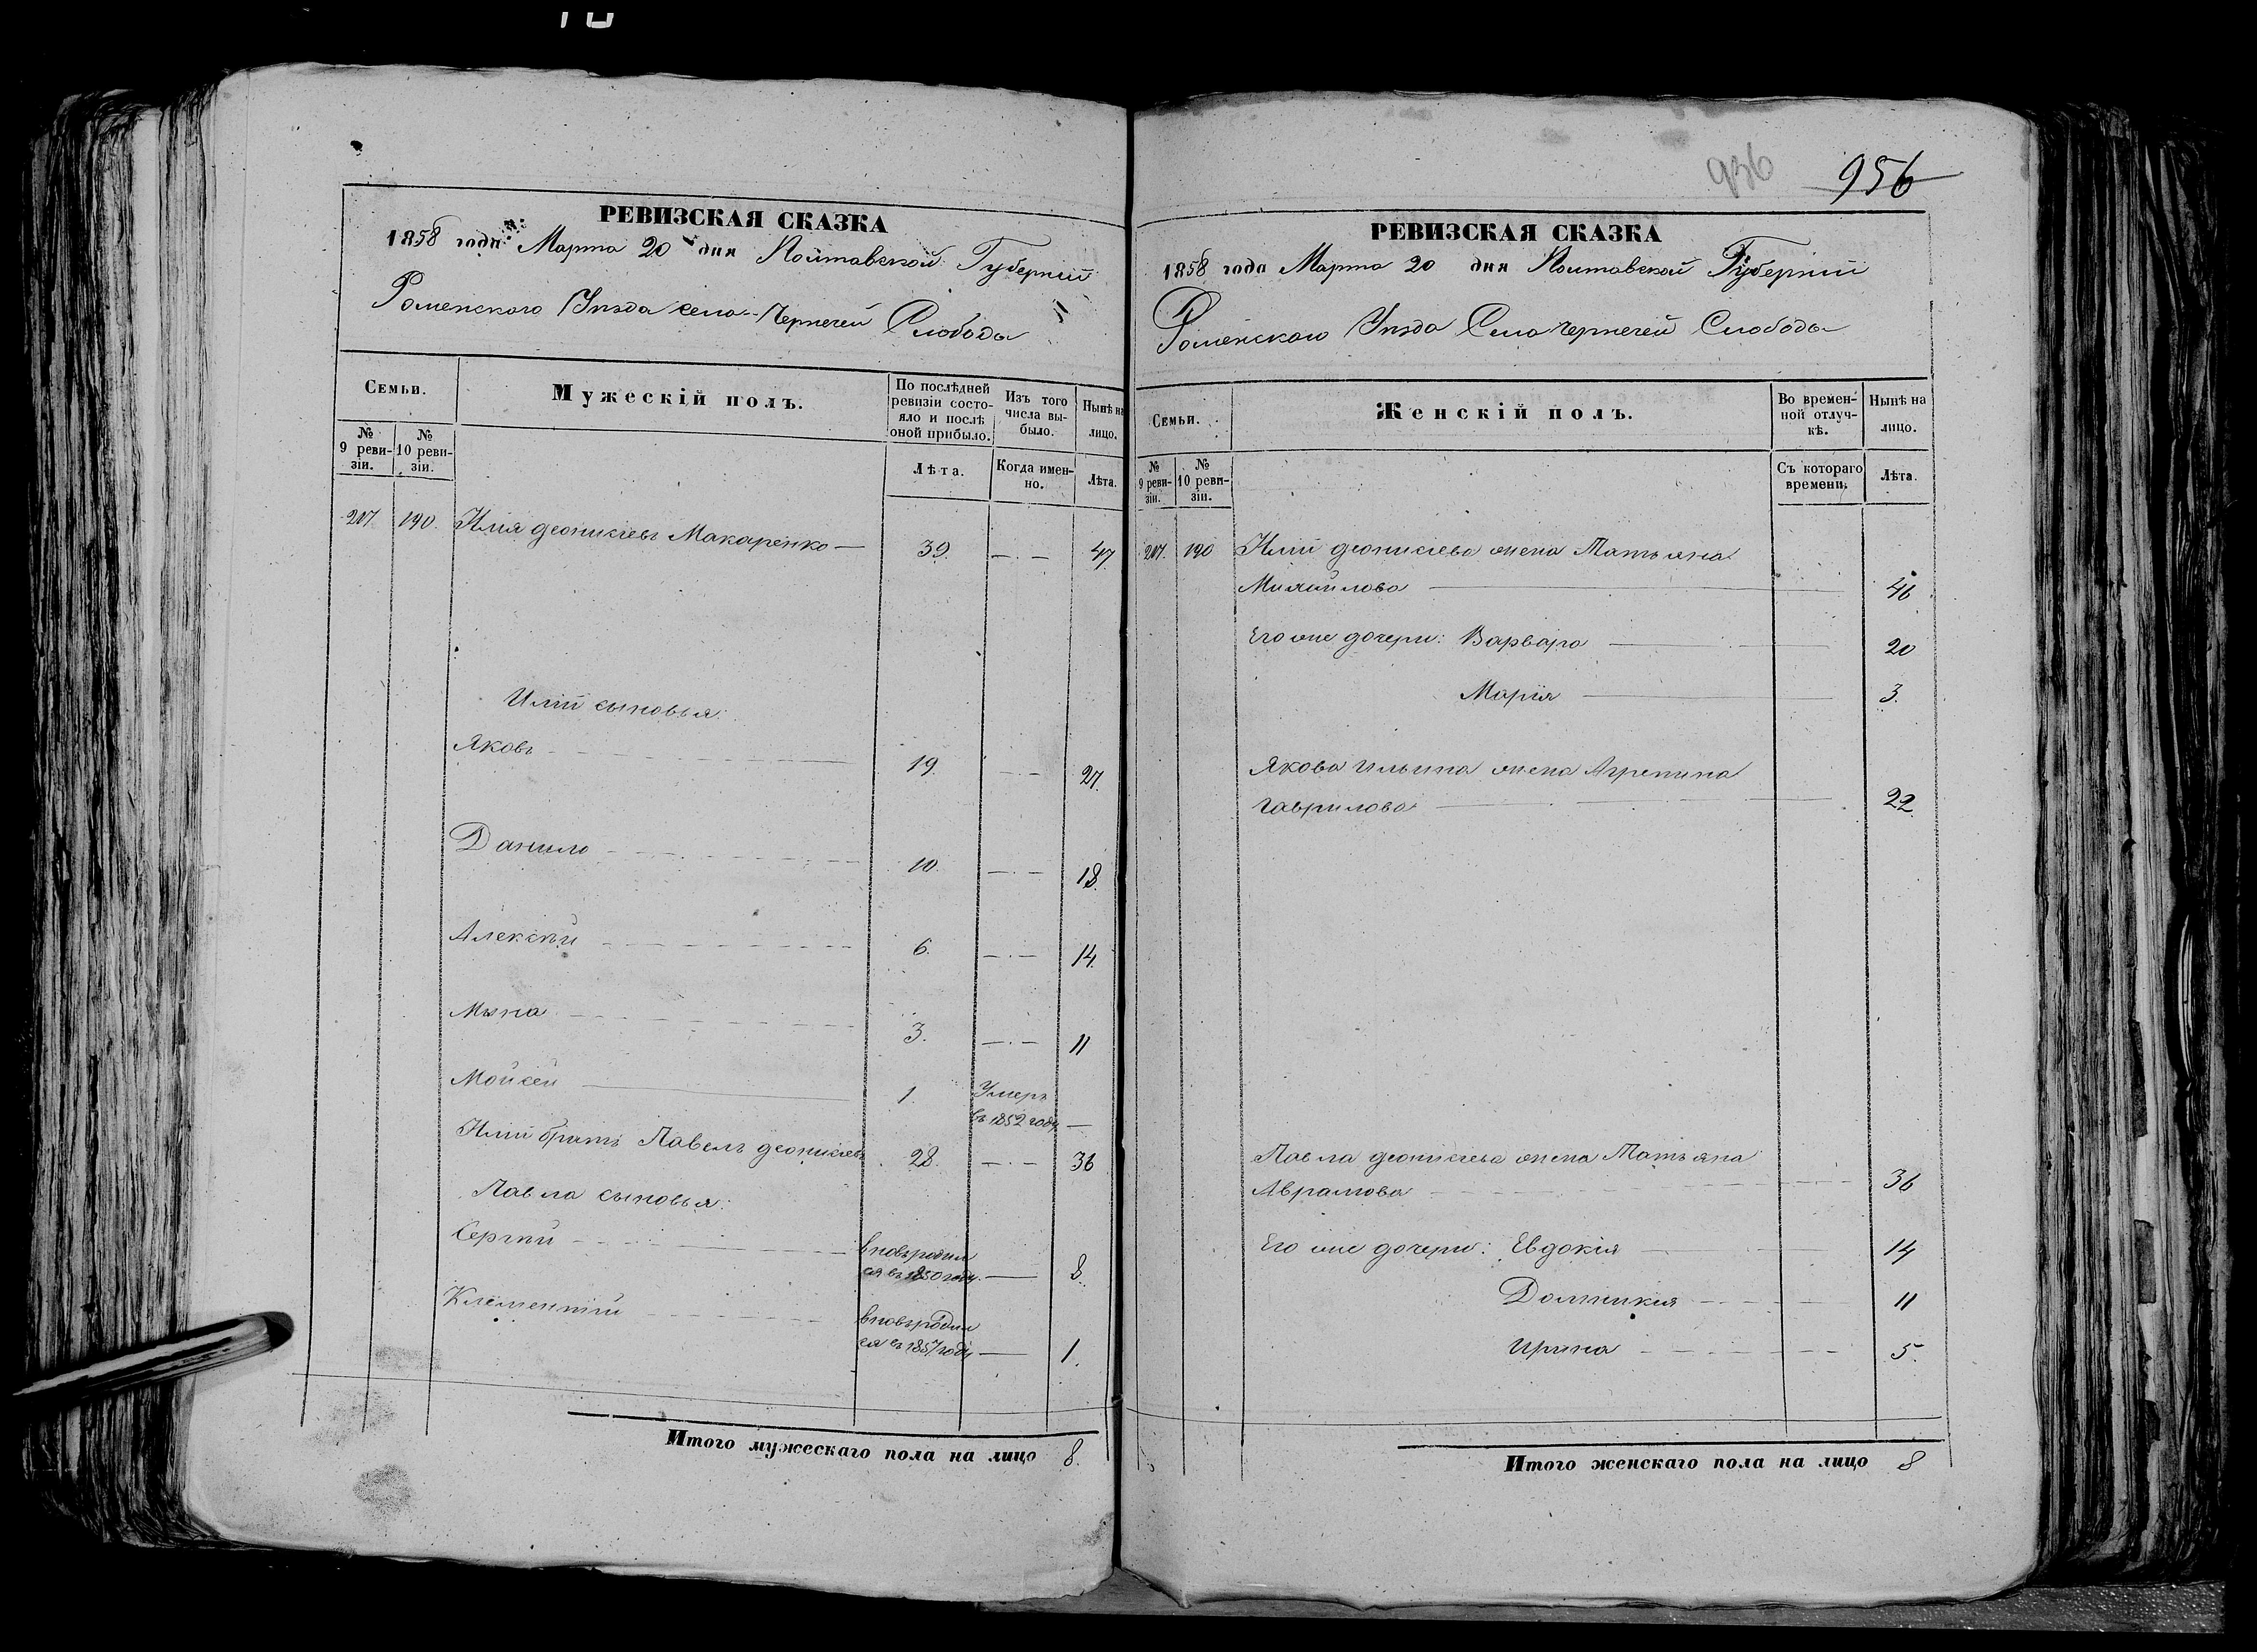 РЕВИЗСКАЯ СКАЗКА
1858 года Марта 20 дня Полтавской Губерніи
Роменского Уезда села Чернечей Слободы
Семьи.
Мужескій полъ.
По послѣдней ревизіи состояло и послѣ оной прибыло.
Изъ того числа выбыло.
Нынѣ на лицо.
№ 9 ревизіи.
№ 10 ревизіи.
Лѣта.
Когда именно.
Лѣта.
207. 190. Илія Деонисіевъ Макаренко — 39. — . — 47
Иліи сыновья:
Яковъ 19. — . — 27.
Данило 10. — . — 18.
Алексѣй 6. — . — 14.
Мына 3. — . — 11
Мойсей 1. Умеръ
въ 1852 году. —
Иліи братъ Павелъ Деонисіевъ 28. — . — 36
Павла сыновья:
Сергѣй вновь родил
ся въ 1850 году. — 8.
Клементій вновь родил
ся въ 1857 году — 1.
Итого мужескаго пола на лицо 8.
936 956
РЕВИЗСКАЯ СКАЗКА
1858 года Марта 20 дня Полтавской Губерніи
Роменского Уезда Села Чернечей Слободы
Семьи.
Женскій полъ.
Во временной отлучкѣ.
Нынѣ на лицо.
№ 9 ревизіи.
№ 10 ревизіи.
Съ котораго времени.
Лѣта.
207. 190 Иліи Деонисіева жена Татьяна
Михайлова 46
Его же дочери: Варвара 20
Марія 3.
Якова Ильина жена Агрепина
Гаврилова 22.
Павла Деонисіева жена Татьяна
Аврамова 36
Его же дочери: Евдокія 14
Домникія 11
Ирина 5.
Итого женскаго пола на лицо 8